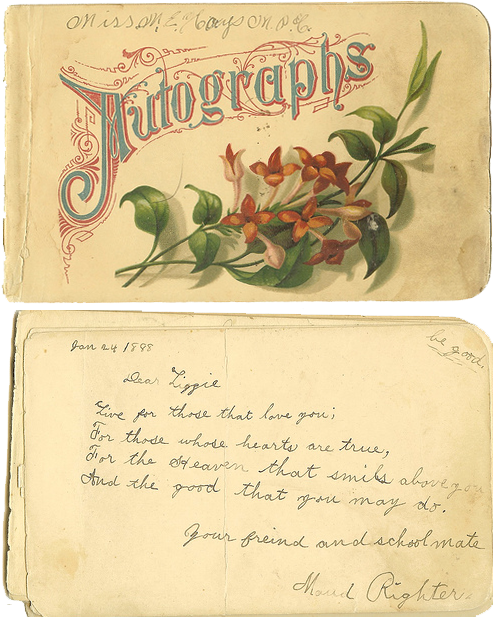 Miss M. E. Hays M. P. H.
Autographs
Jan 24 1898
be good.
Dear Lizzie
Live for those that love you;
For those whose hearts are true,
For the Heaven that smils above you
And the good that you may do.
Your freind and schoolmate
Maud Righter